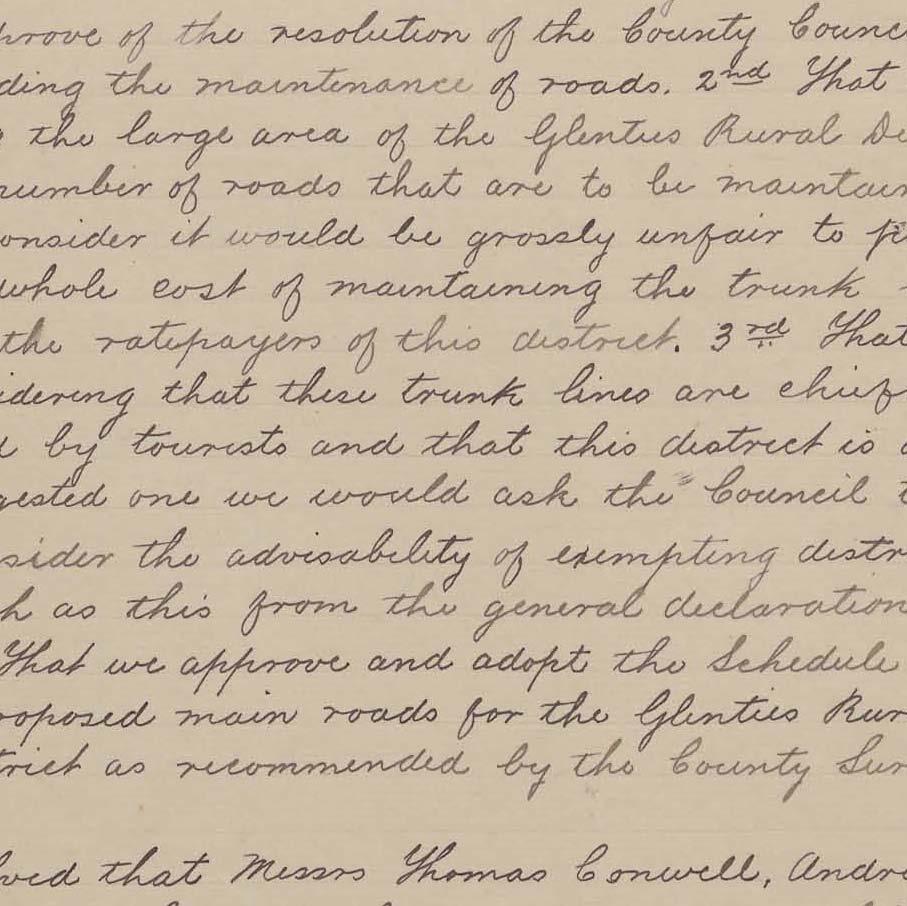 prove of the resolution of the County Counc
ding the maintenance of roads. 2nd That
the large area of the Glenties Rural De
number of roads that are to be maintain
onsider it would be grossly unfair to
whole cost of maintaining the trunk
the ratepayers of this district. 3rd That
idering that these trunk lines are chief
d by tourists and that this district is
gested one we would ask the Council t
sider the advisability of exempting distr
h as this from the general declaration
That we approve and adopt the Schedule
roposed main roads for the Glenties Rur
trict as recommended by the County Sur
lved that Messrs Thomas Conwell, Andre